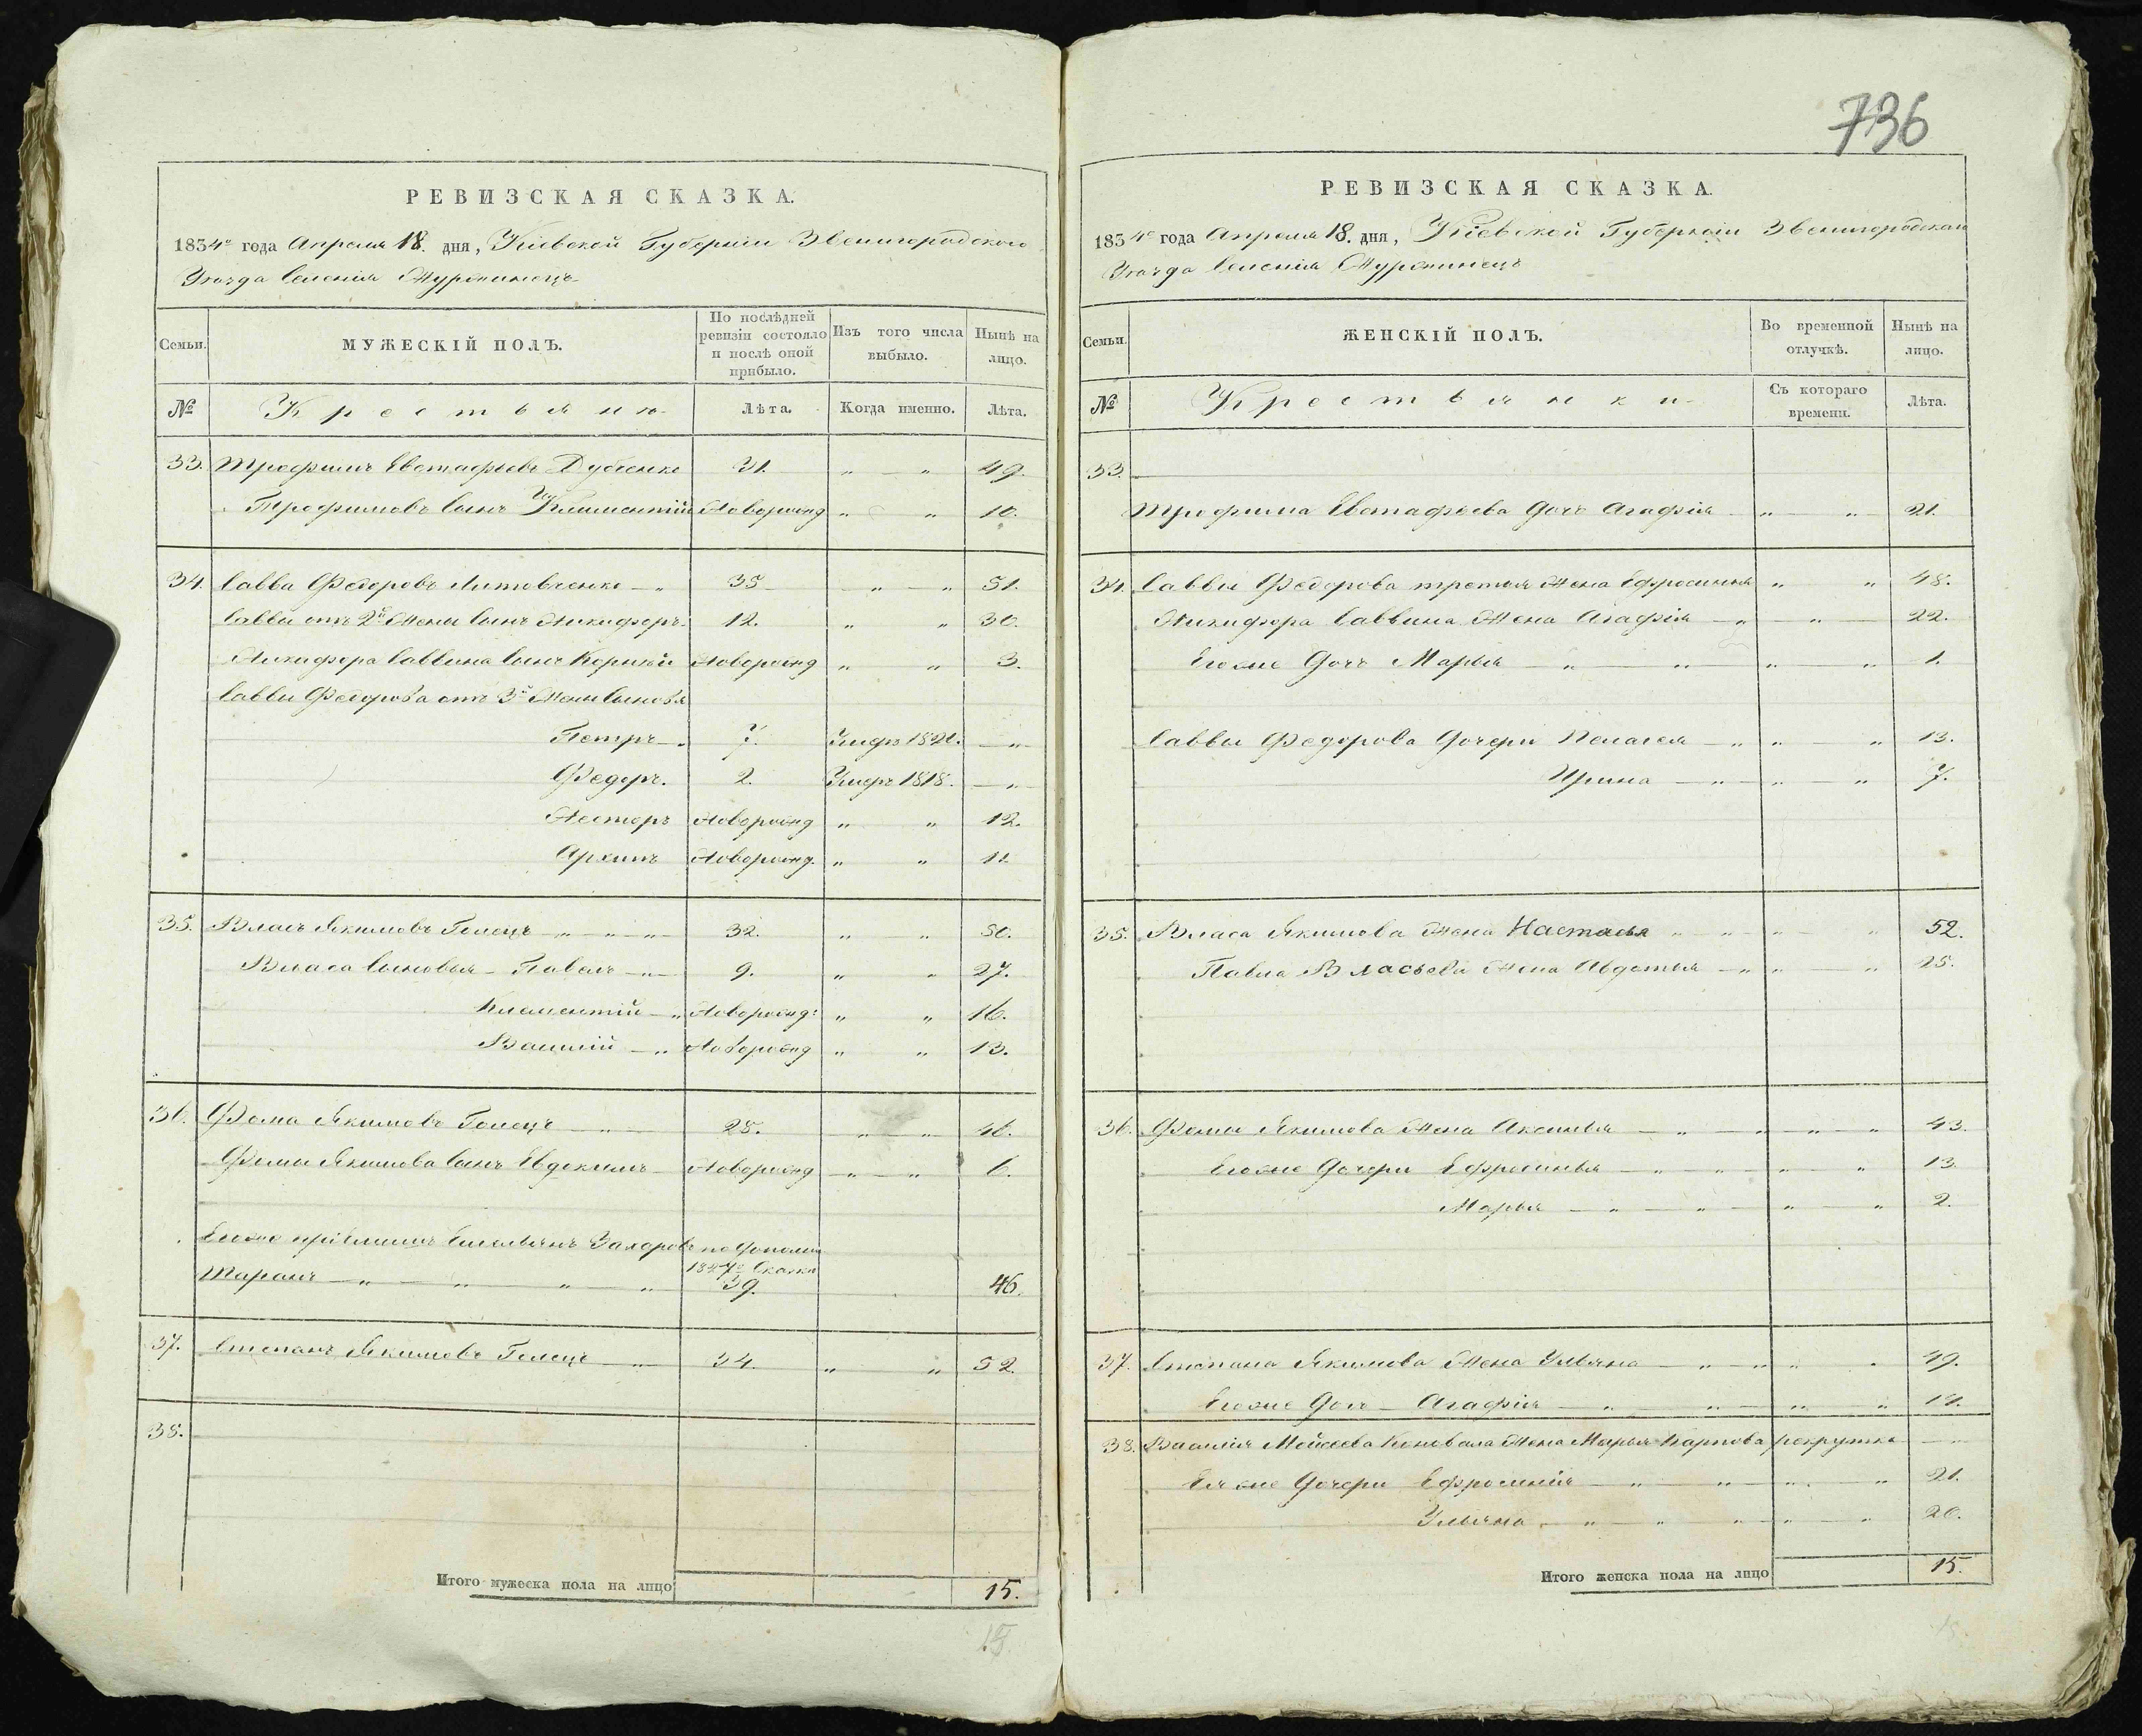 736
РЕВИЗСКАЯ СКАЗКА.
1834го года Апреля 18. дня, Кіевской Губерніи Звенигородского
Уѣзда Селенія Журжинецъ
Семьи. МУЖЕСКІЙ ПОЛЪ. По послѣдней ревизіи состояло и послѣ оной прибыло. Изъ того числа выбыло. Нынѣ на лицо.
№ Крестьяне Лѣта. Когда именно. Лѣта.
33. Трофимъ Евстафьевъ Дубенко 31. " " 49.
Трофимовъ Сынъ Климентій Новорожд " " 10.
34. Савва Федоровъ Литовченко " 35 " " 51.
Саввы отъ 2й Жены Сынъ Никифоръ 12. " " 30.
Никифора Саввина Сынъ Корнѣй Новорожд " " 3.
Саввы Федорова отъ 3й Жены Сыновья
Петръ " 7. Умеръ 1821. "
Федоръ. 2. Умеръ 1818. "
Несторъ Новорожд " " 12.
Архипъ Новорожд. " " 11.
35. Власъ Якимовъ Голецъ " " " 32. " " 50.
Власа Сыновья Павелъ " 9. " " 27.
Климентій " Новорожд: " " 16.
Василій " Новорожд " " 13.
36. Фома Якимовъ Голецъ " 28. " " 46.
Фомы Якимова Сынъ Евдокимъ Новорожд " " 6.
Егоже пріёмышъ Емельянъ Захаровъ по дополни
Таранъ " " " " 1827й Сказки 39. 46.
37. Степанъ Якимовъ Голецъ " 34. " " 52.
38.
Итого мужеска пола на лицо 15.
15.
РЕВИЗСКАЯ СКАЗКА.
1834го года Апреля 18. дня, Кіевской Губерніи Звенигородскаго
Уѣзда Селенія Журжинецъ
Семьи. ЖЕНСКІЙ ПОЛЪ. Во временной отлучкѣ. Нынѣ на лицо.
№ Крестьянки Съ котораго времени. Лѣта.
33.
Трофима Евстафьева дочь Агафія " " 21.
34. Саввы Федорова третья Жена Ефросинья " " 48.
Никифора Саввина Жена Агафія " " 22.
Егоже дочь Марья " " " " 1.
Саввы Федорова дочери Пелагея " " " 13.
Ирина " " " 7.
35. Власа Якимова Жена Настасья " " " " 52.
Павла Власьева Жена Авдотья " " " 25.
36. Фомы Якимова Жена Аксинья " " " " 43.
Егоже дочери Ефросинья " " " " 13.
Марья " " " " 2.
37. Степана Якимова Жена Ульяна " " " " 49.
Егоже дочь Агафія " " " "
38. Василія Мойсеева Коновала Жена Марья Карпова рекрутка "
Ея же дочери Ефросинія " " " " 21.
Ульяна " " " " " 20.
Итого женска пола на лицо 15.
15.